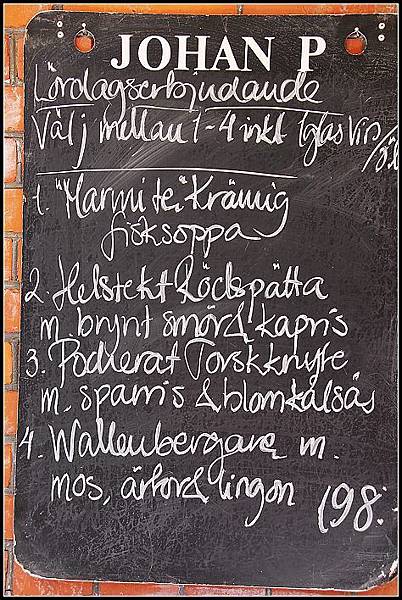 JOHAN P
Lördagserbjudande
Välj mellan 1-4 inkl 1glas Vin/öl
1. "Marmite." Krämig
fisksoppa
2. Helstekt Rödspätta
m. brynt smör & kapris
3. Pocherat Torskknyte
m. sparris & blomkålsås
4. Wallenbergare m.
mos, ärtor & lingon 198:-